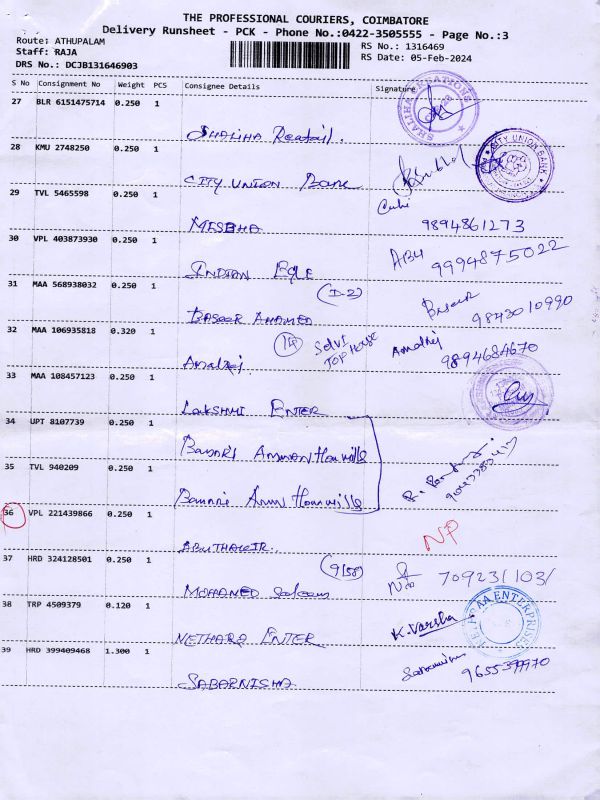 THE PROFESSIONAL COURIERS, COIMBATORE
Delivery Runsheet - PCK - Phone No.:0422-3505555 - Page No.:3
Route: ATHUPALAM
RS No.: 1316469
Staff: RAJA
RS Date: 05-Feb-2024
DRS No.: DCJB131646903
S No Consignment No Weight PCS Consignee Details Signature
27 BLR 6151475714 0.250 1
SHALIHA
28 KMU 2748250 0.250 1
CITY UNION Bank
CITY UNION BANK
29 TVL 5465598 0.250 1
MESBHA 9894861273
30 VPL 403873930 0.250 1
INDIAN ABU 9994875022
31 MAA 568938032 0.250 1
(D-2)
BASEER AHAMED 9843010990
32 MAA 106935818 0.320 1
Selvi
TOP House
Amalrej Amalrej 9894684670
33 MAA 108457123 0.250 1
LAKSHMI ENTER
34 UPT 8107739 0.250 1
Bannari Amman
35 TVL 940209 0.250 1
Bannari Amm
36 VPL 221439866 0.250 1
NP
ABUTHAHIR.
37 HRD 324128501 0.250 1
MOHAMED Saleem
38 TRP 4509379 0.120 1
K. Varsha
NETHRAA ENTERPRISES
NETHARA ENTER
39 HRD 399409468 1.300 1
SABARNISHA